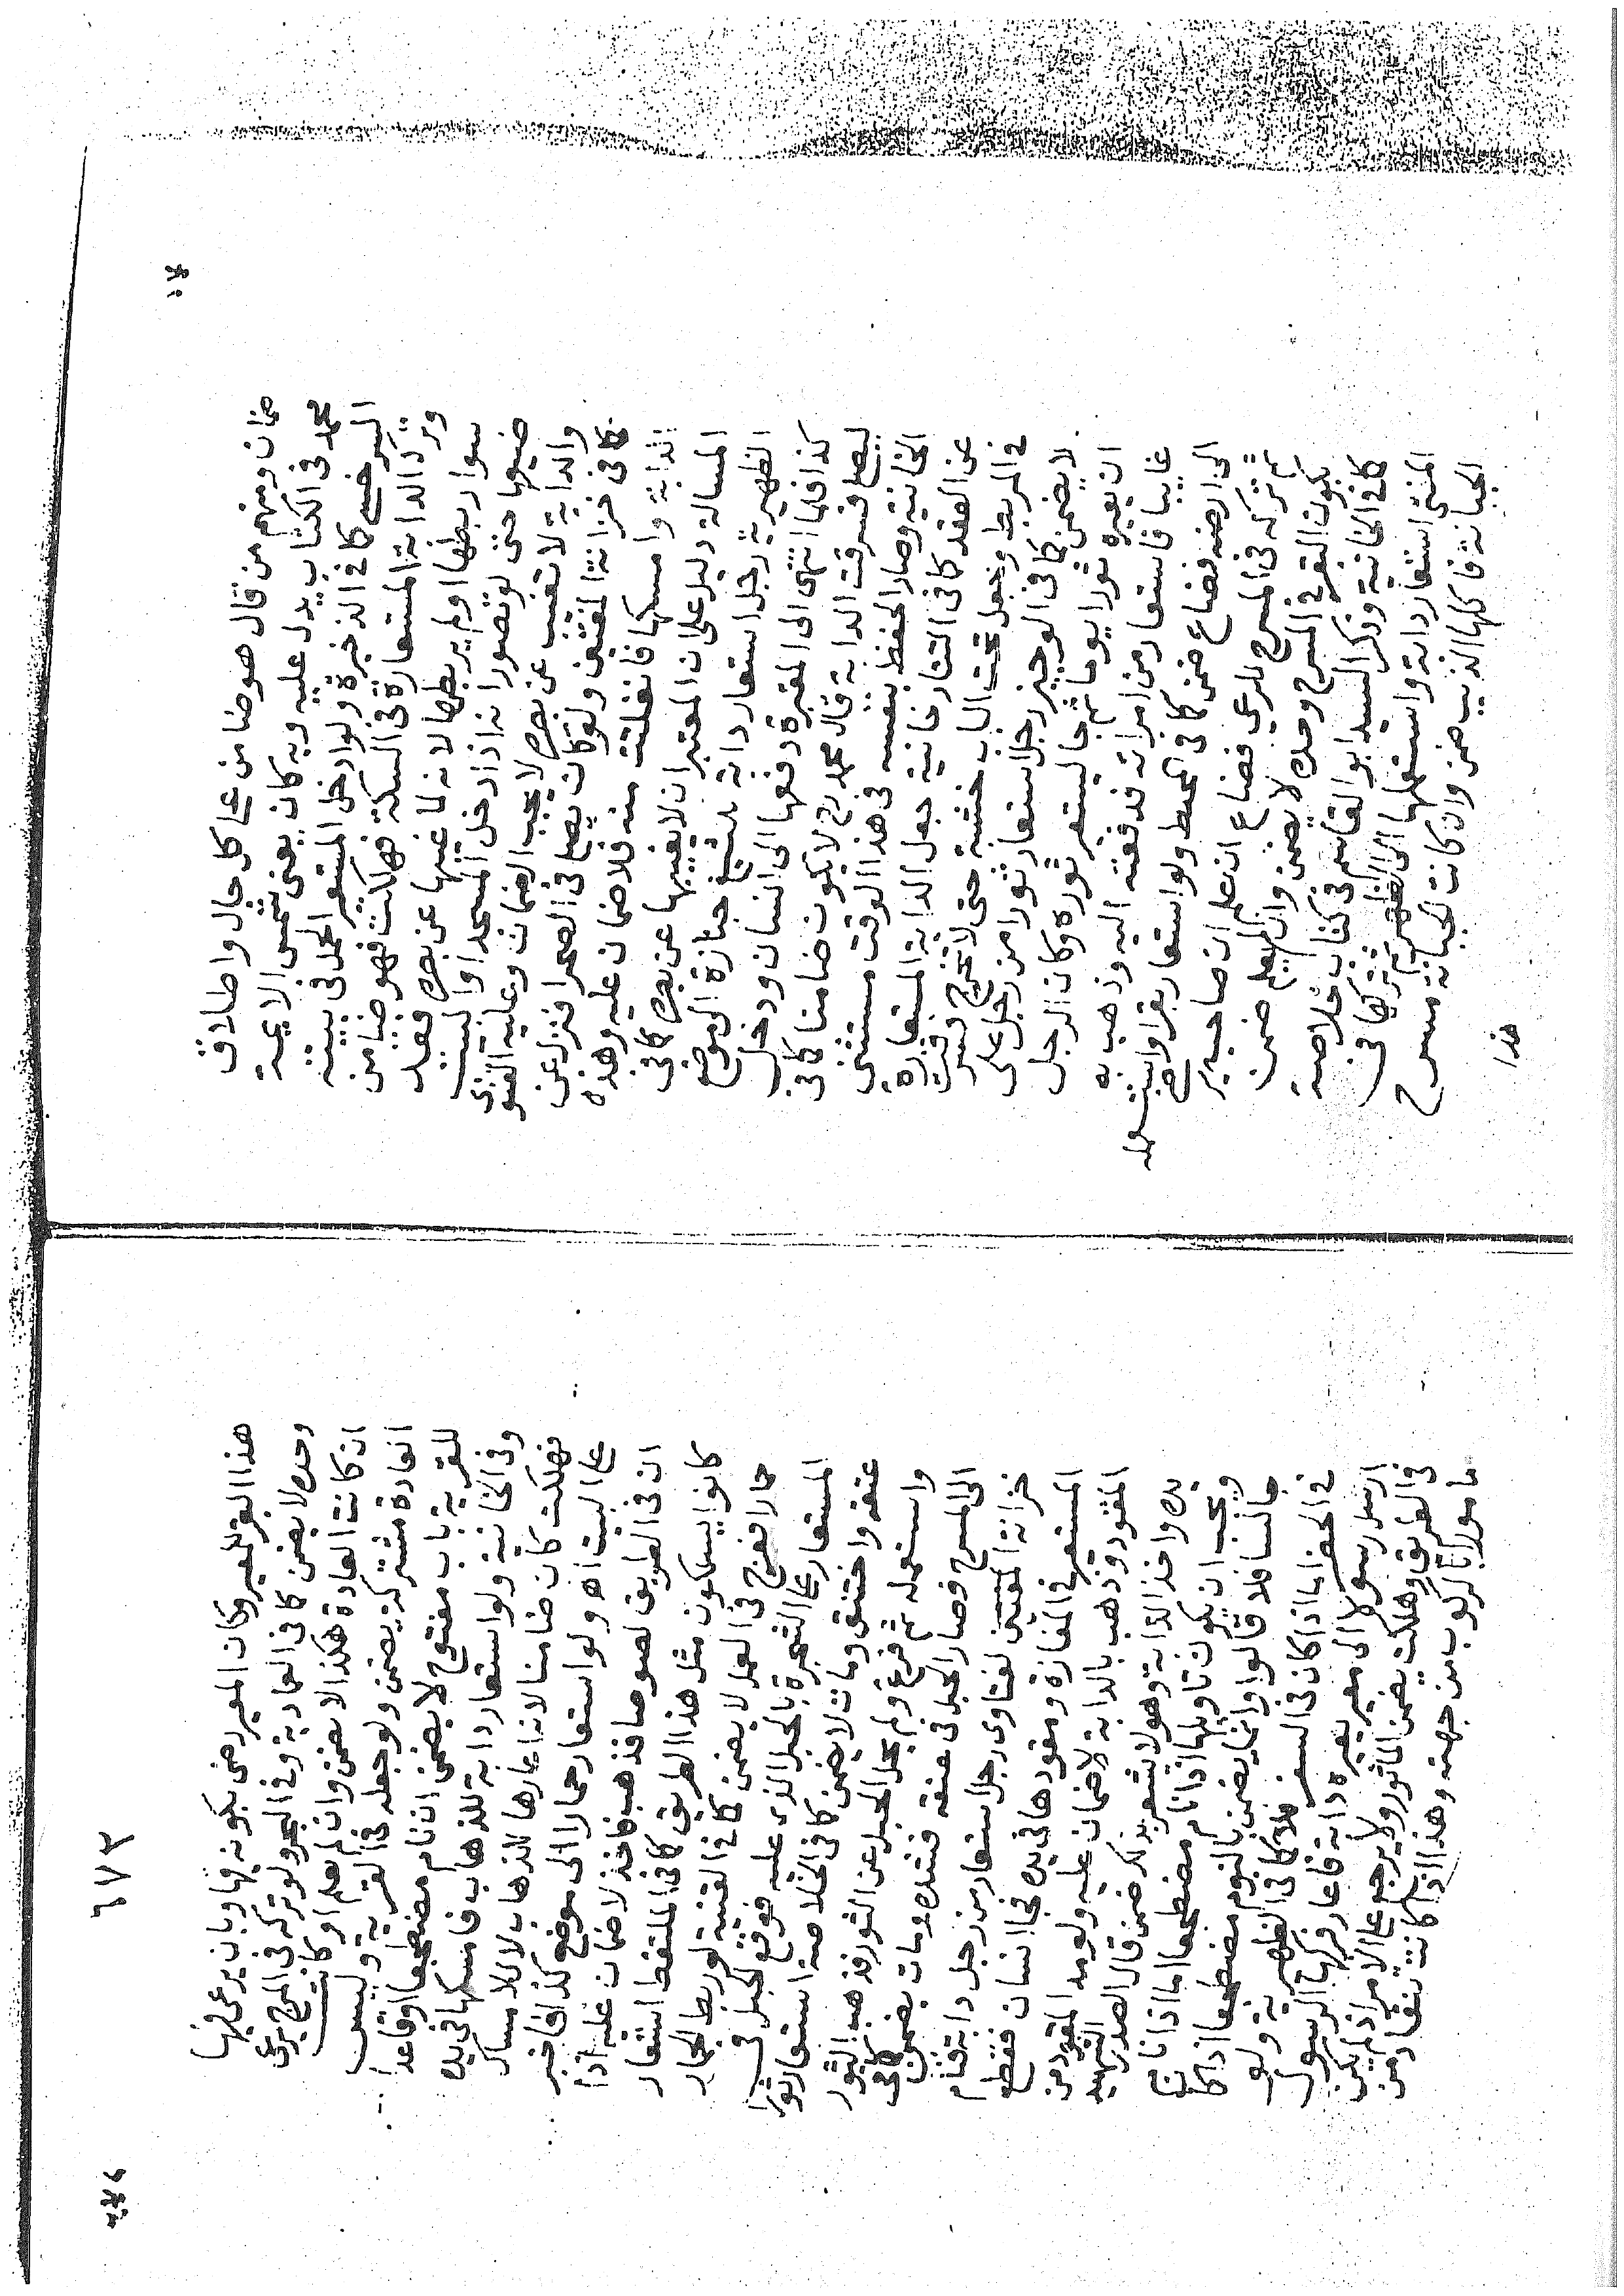 ضمان ومنهم من قال هو ضامن على كل حال واطلاق
محمد في الكتاب يدل عليه وبه كان يفتى شمس الائمة
السرخسي كما في الذخيرة ولو ادخل المستعير الحمل في بيته
وترك الدابة المستعارة في السكة فهلكت فهو ضامن
سوا ربطها او لم يربطها لانه لما غيبها عن بصره فقد
ضيعها حتى لو تصور انه اذا دخل المسجد او البيت
والدابة لا تغيب عن بصره لا يجب الضمان وعليه الفتوى
كما في خزانة المفتين ولو كان يصلي في الصحرا فنزل عن
الدابة وامسكها فانفلتت منه فلا ضمان عليه وهذه
المسالة دليل على ان المعتبر ان لا يغيبها عن بصره كما في
الظهيرية رجل استعار دابة لتشيع جنازة الى موضع
كذا فلما انتهى الى المقبرة دفعها الى انسان ودخل
ليصلي فسرقت الدابة قال محمد رح لا يكون ضامنا كما في
الخانية وصار الحفظ بنفسه في هذا الوقت مستثنى
عن العقد كما في التتارخانية جعل الدابة المستعارة
في المربط وجعل تحت الباب خشبة حتى لا تخرج فسرقت
لا يضمن كما في الوجيز رجل استعار ثورا من رجل على
ان يعيره ثورا يوما ثم جا ليستعير ثوره وكان الرجل
غايبا فاستعار من امراته فدفعته اليه وذهب به
الى ارضه فضاع ضمن كما في المحيط ولو استعار بقرا واستعمله
ثم تركه في المسرح للرعي فضاع ان علم ان صاحبه يرضى
بكون البقر في المسرح وحده لا يضمن وان لم يعلم ضمن
كما في الخانية وذكر السيد ابو القاسم في كتاب خلاصة
المفتى استعار دابة واستعملها الى الظهر ثم تركها في
الجبانة فاكلها الذيب ضمن وان كانت الجبانة مسرح
هذا
٦٧٣
هذا البقر للمعير وكان المعير رضى بكونه فيها وبان يرعى فيها
وحده لا يضمن كما في العمادية وفي البحر ولو تركه في المرج يرعى
ان كانت العادة هكذا لا يضمن وان لم يعلم او كانت
العادة مشتركة يضمن ولو جعله في القرية وليس
للقرية باب مفتوح لا يضمن ان نام مضطجعا او قاعدا
وفي الخانية ولو استعار دابة للذهاب فامسكها في بيته
فهلكت كان ضامنا لانه اعارها للذهاب لا للامساك
على البيت اه ولو استعار حمارا الى موضع كذا فاخبر
ان في الطريق لصوصا فذهب فاخذ لا ضمان عليه اذا
كانوا يسلكون مثل هذا الطريق كما في الملتقط استعار
حمارا ففرغ في العمل لا يضمن كما في القنية لو ربط الحمار
المستعار على الشجرة بالحبل الذي عليه فوقع الحبل في
عنقه واختنق ومات لا يضمن كما في الخلاصة استعار ثورا
واستعمله ثم فرغ ولم يحل الحبل عن الثور فذهب الثور
الى المسرح فصار الحبل في عنقه فشده ومات يضمن كما في
خزانة المفتين لفتاوى رجل استعار من رجل دابة فنام
المستعير في المفازة ومقودها في يده فجا انسان فقطع
المقود وذهب بالدابة لا ضمان عليه ولو مد المقود من
يده واخذ الدابة وهو لا يشعر بذلك ضمن قال الصدر الشهيد
ويجب ان يكون تاويلها اذا نام مضطجعا اما اذا نام
جالسا فلا قالوا وانما يضمن بالنوم مضطجعا اذا كان
في الحضر اما اذا كان في السفر فلا كما في الظهيرية ولو
ارسل رسولا الى معير يعيره دابة فاعار فركبها الرسول
في الطريق وهلكت يضمن المامور ولا يرجع على الامر اذا لم يكن
مامورا بالركوب من جهته وهذا اذا كانت تنقاد من